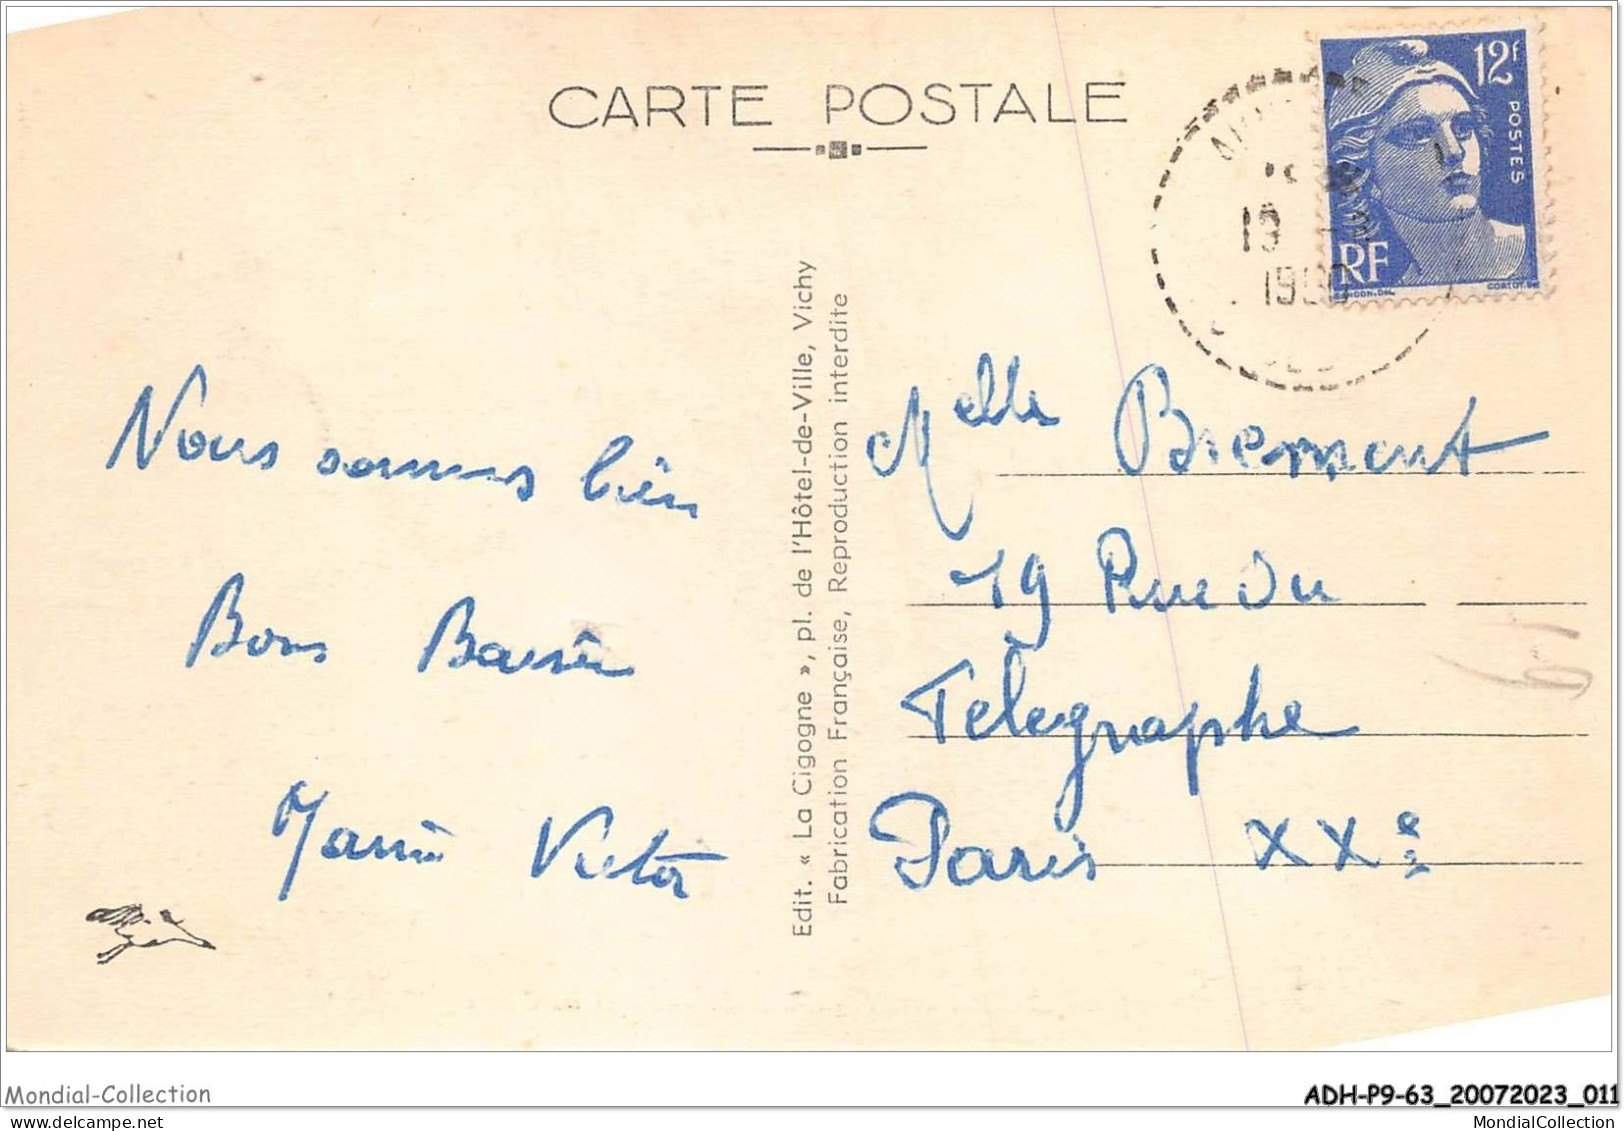 CARTE POSTALE
12f
POSTES
RF
19
Nous sommes bien
Bons Baisers
Victor
Edit. « La Cigogne », pl. de l'Hôtel-de-Ville, Vichy
Fabrication Française, Reproduction interdite
Melle Bremont
19 Rue du
Télégraphe
Paris XXe
Mondial-Collection
ADH-P9-63_20072023_011
MondialCollection